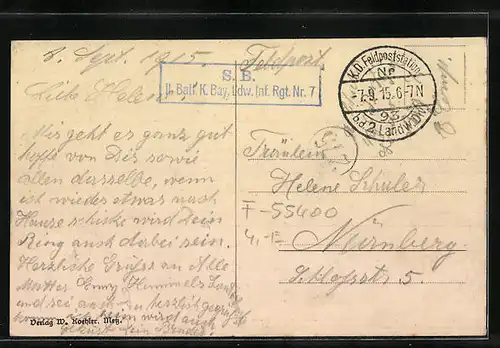 8. Sept. 1915. Feldpost
S. B.
II. Batl. K. Bay. Ldw. Inf. Rgt. Nr. 7
K.D. Feldpoststation
Nr
-7.9.15.6-7N
93
b.d. 2. Landw. Div.
Liebe Helen
Mir geht es ganz gut
hoffe von Dir sowie
allen dasselbe, wenn
ich wieder etwas nach
Hause schicke wird Dein
Ring auch dabei sein.
Herzliche Grüsse an Alle
Mutter Emmy
und sei auch herzlich gegrüßt
Dein Bruder
Fräulein
Helene Schuler
F-55400
4,-E
Nürnberg
Schloßstr 5.
Verlag W. Koehler, Metz.